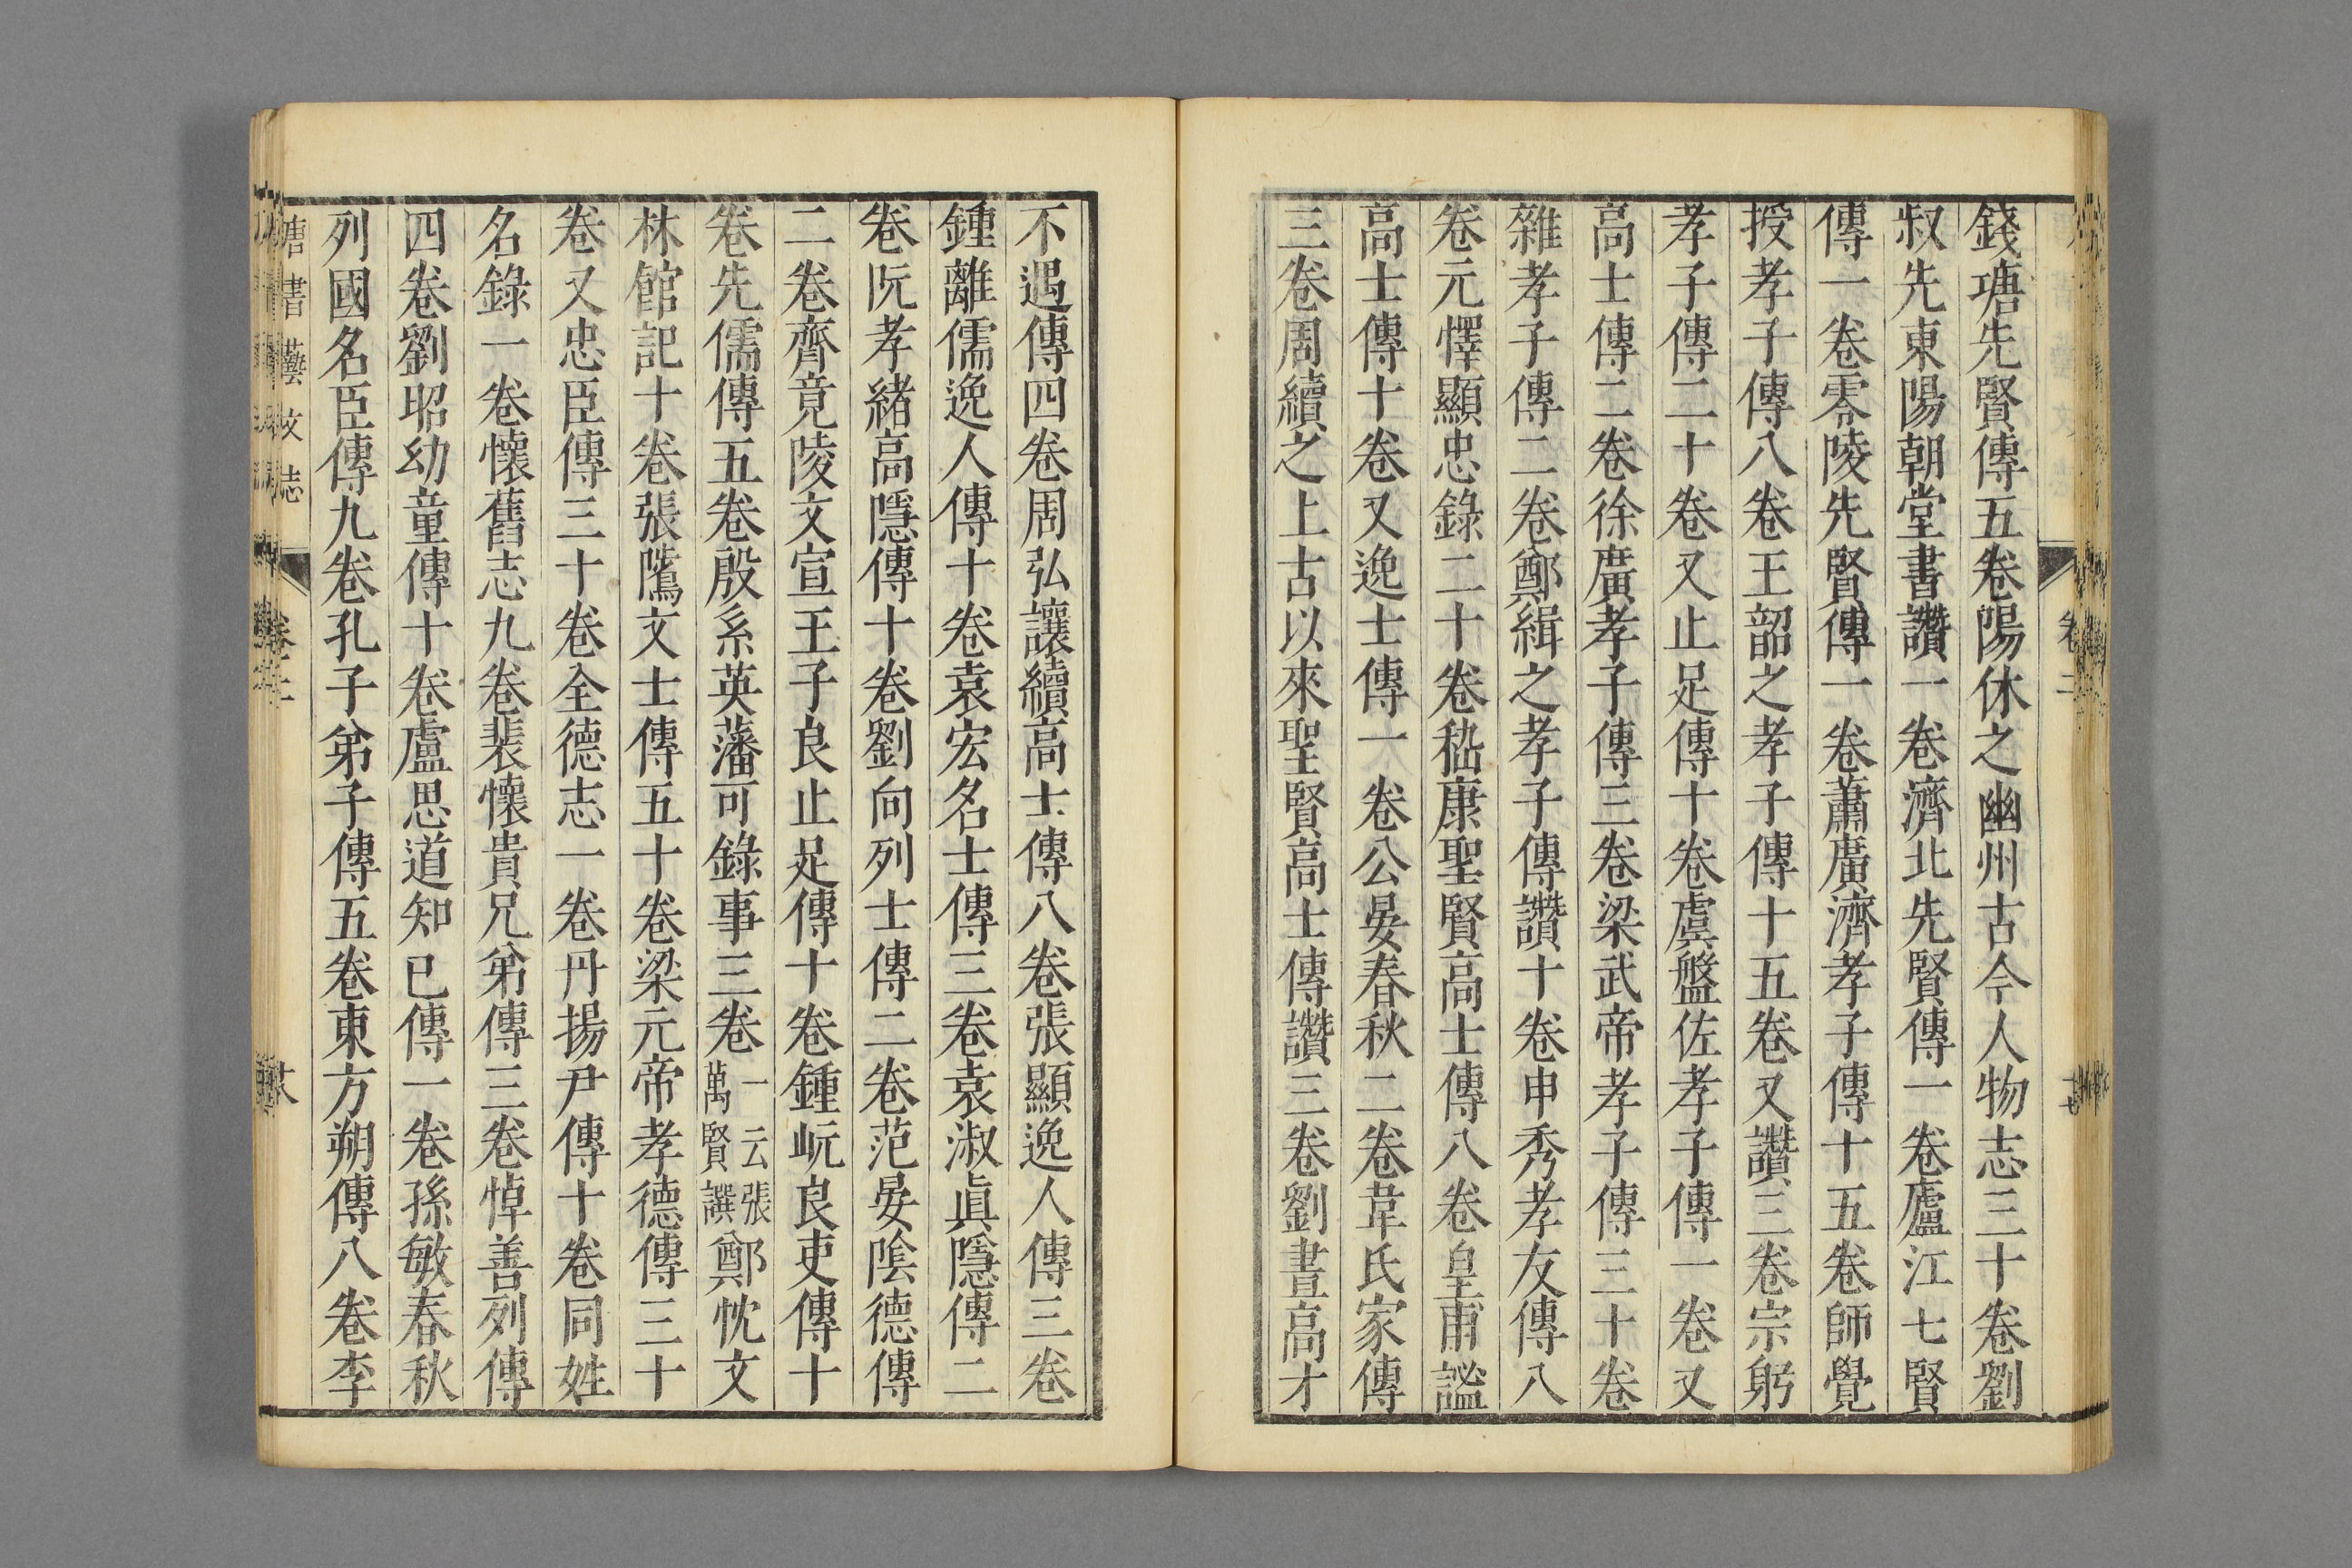 錢塘先賢傳五卷陽休之幽州古今人物志三十卷劉
叔先東陽朝堂書讚一卷濟北先賢傳一卷廬江七賢
傳一卷零陵先賢傳一卷蕭廣濟孝子傳十五卷師覺
授孝子傳八卷王韶之孝子傳十五卷又讚三卷宗躬
孝子傳二十卷又止足傳十卷虞盤佐孝子傳一卷又
高士傳二卷徐廣孝子傳三卷梁武帝孝子傳三十卷
雜孝子傳二卷鄭緝之孝子傳讚十卷申秀孝友傳八
卷元懌顯忠錄二十卷嵇康聖賢高士傳八卷皇甫謐
高士傳十卷又逸士傳一卷公晏春秋二卷韋氏家傳
三卷周續之上古以來聖賢高士傳讚三卷劉晝高才
不遇傳四卷周弘讓續高士傳八卷張顯逸人傳三卷
鍾離儒逸人傳十卷袁宏名士傳三卷袁淑眞隱傳二
卷阮孝緒高隱傳十卷劉向列士傳二卷范晏陰德傳
二卷齊竟陵文宣王子良止足傳十卷鍾岏良吏傳十
卷先儒傳五卷殷系英藩可錄事三卷一云張萬賢譔鄭忱文
林館記十卷張隲文士傳五十卷梁元帝孝德傳三十
卷又忠臣傳三十卷全德志一卷丹揚尹傳十卷同姓
名錄一卷懷舊志九卷裴懷貴兄弟傳三卷悼善列傳
四卷劉昭幼童傳十卷盧思道知己傳一卷孫敏春秋
列國名臣傳九卷孔子弟子傳五卷東方朔傳八卷李
唐書藝文志 卷二 十八